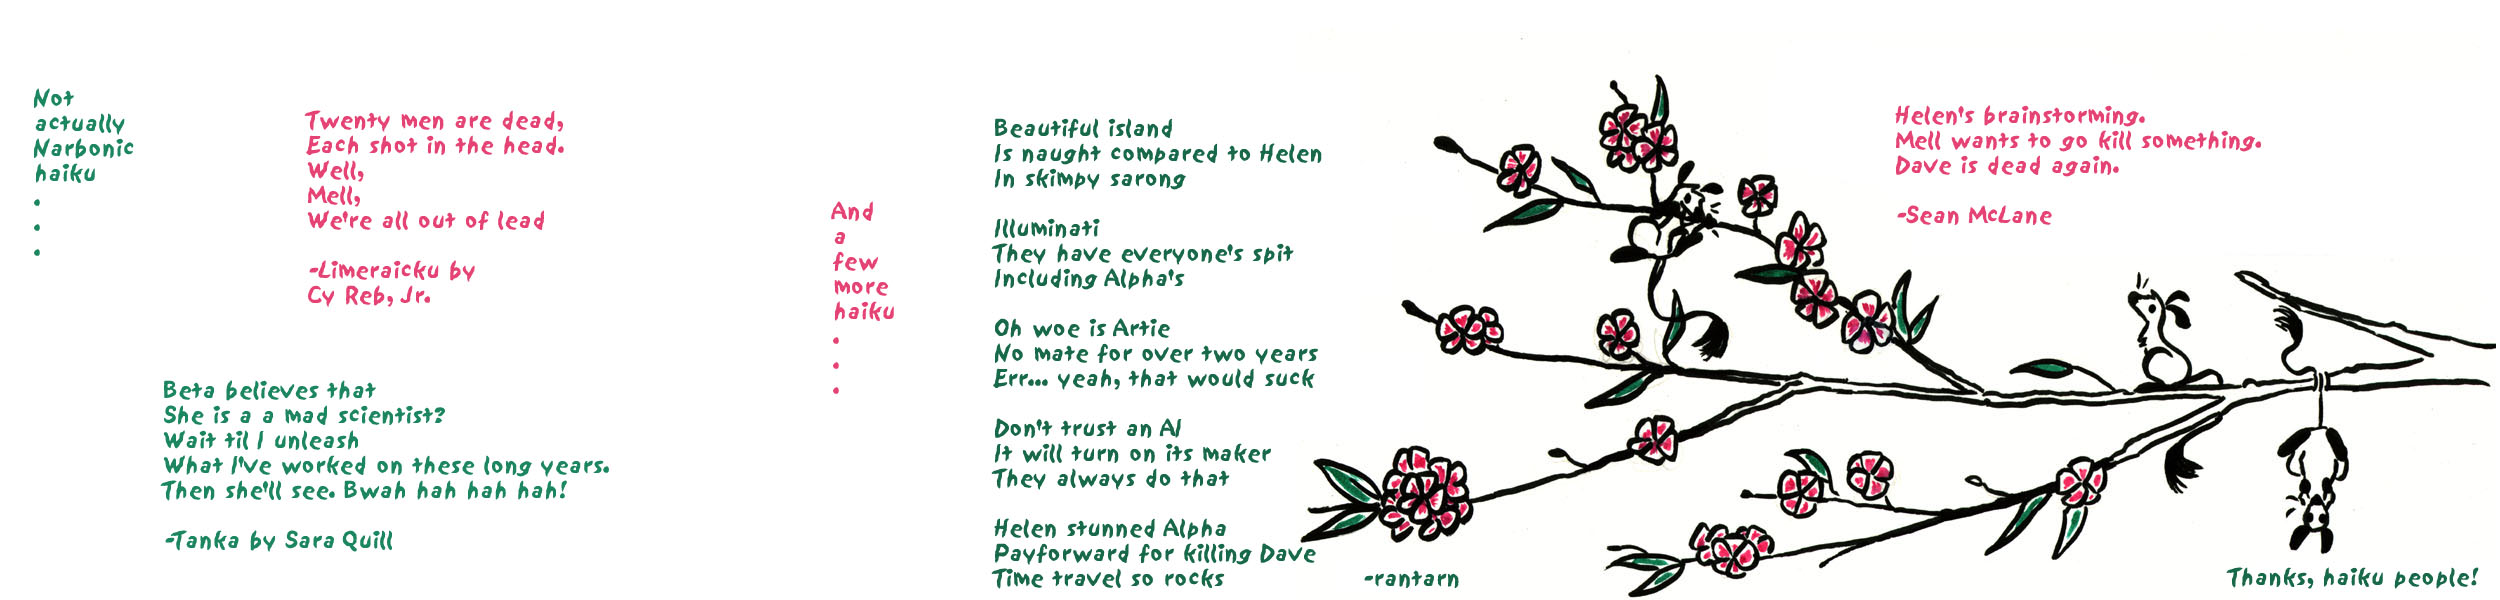 Not
actually
Narbonic
haiku
.
.
.
Twenty men are dead,
Each shot in the head.
Well,
Mell,
We're all out of lead
-Limeraicku by
Cy Reb, Jr.
Beta believes that
She is a a mad scientist?
Wait til I unleash
What I've worked on these long years.
Then she'll see. Bwah hah hah hah!
-Tanka by Sara Quill
And
a
few
more
haiku
.
.
.
Beautiful island
Is naught compared to Helen
In skimpy sarong
Illuminati
They have everyone's spit
Including Alpha's
Oh woe is Artie
No mate for over two years
Err... yeah, that would suck
Don't trust an AI
It will turn on its maker
They always do that
Helen stunned Alpha
Payforward for killing Dave
Time travel so rocks
-rantarn
Helen's brainstorming.
Mell wants to go kill something.
Dave is dead again.
-Sean McLane
Thanks, haiku people!